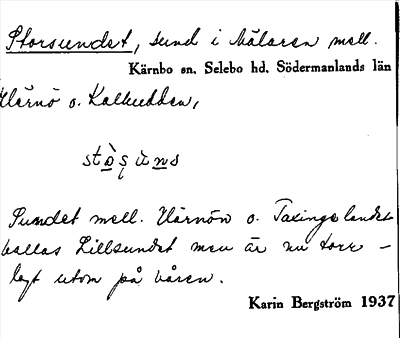 Storsundet, sund i Mälaren mell.
Kärnbo sn. Selebo hd. Södermanlands län
Härnö o. Kalkudden,
Sundet mell. Härnön o. Taxingelandet
kallas Lillsundet men är nu torr-
lagt utom på våren.
Karin Bergström 1937